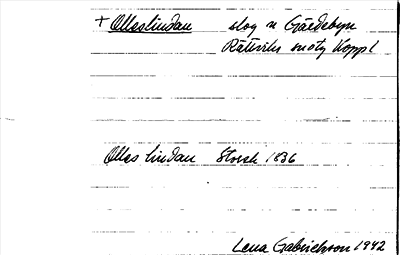 + Olleslindan skog n Gärdebyn
Rättviks snstg Koppl
Olles lindan Storsk 1836
Lena Gabrielsson 1942